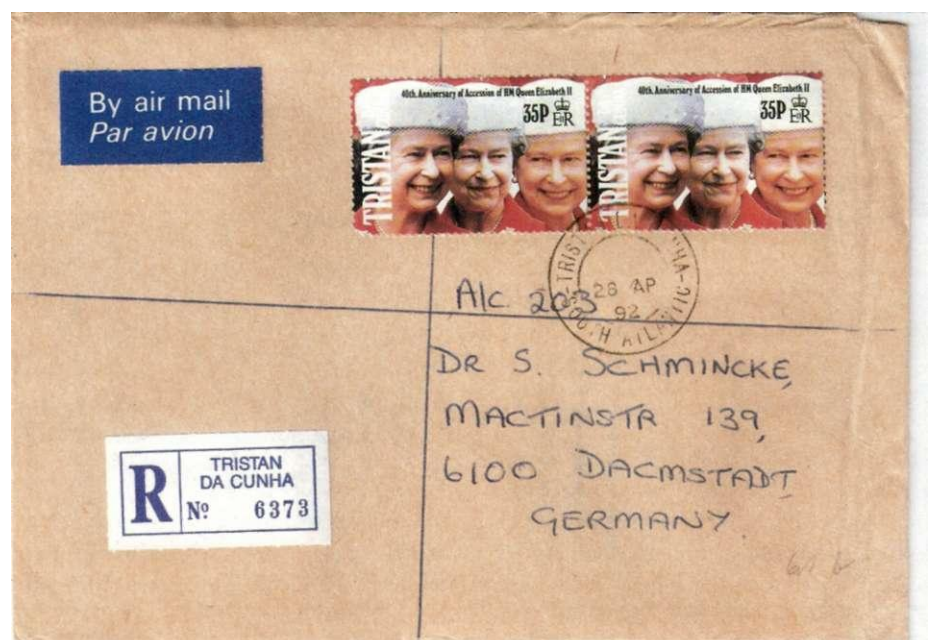 By air mail
Par avion
40th. Anniversary of Accession of HM Queen Elizabeth II
35P
E R
TRISTAN
40th. Anniversary of Accession of HM Queen Elizabeth II
35P
E R
TRISTAN
28 AP
92
SOUTH ATLANTIC
A/c 203
DR S. SCHMINCKE,
MACTINSTR 139,
6100 DACMSTADT
GERMANY
R
TRISTAN
DA CUNHA
Nº 6373